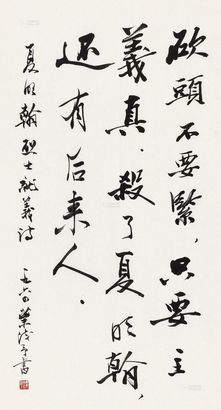 砍頭不要緊，只要主
義真．殺了夏明翰，
还有后来人．
夏明翰烈士就義诗